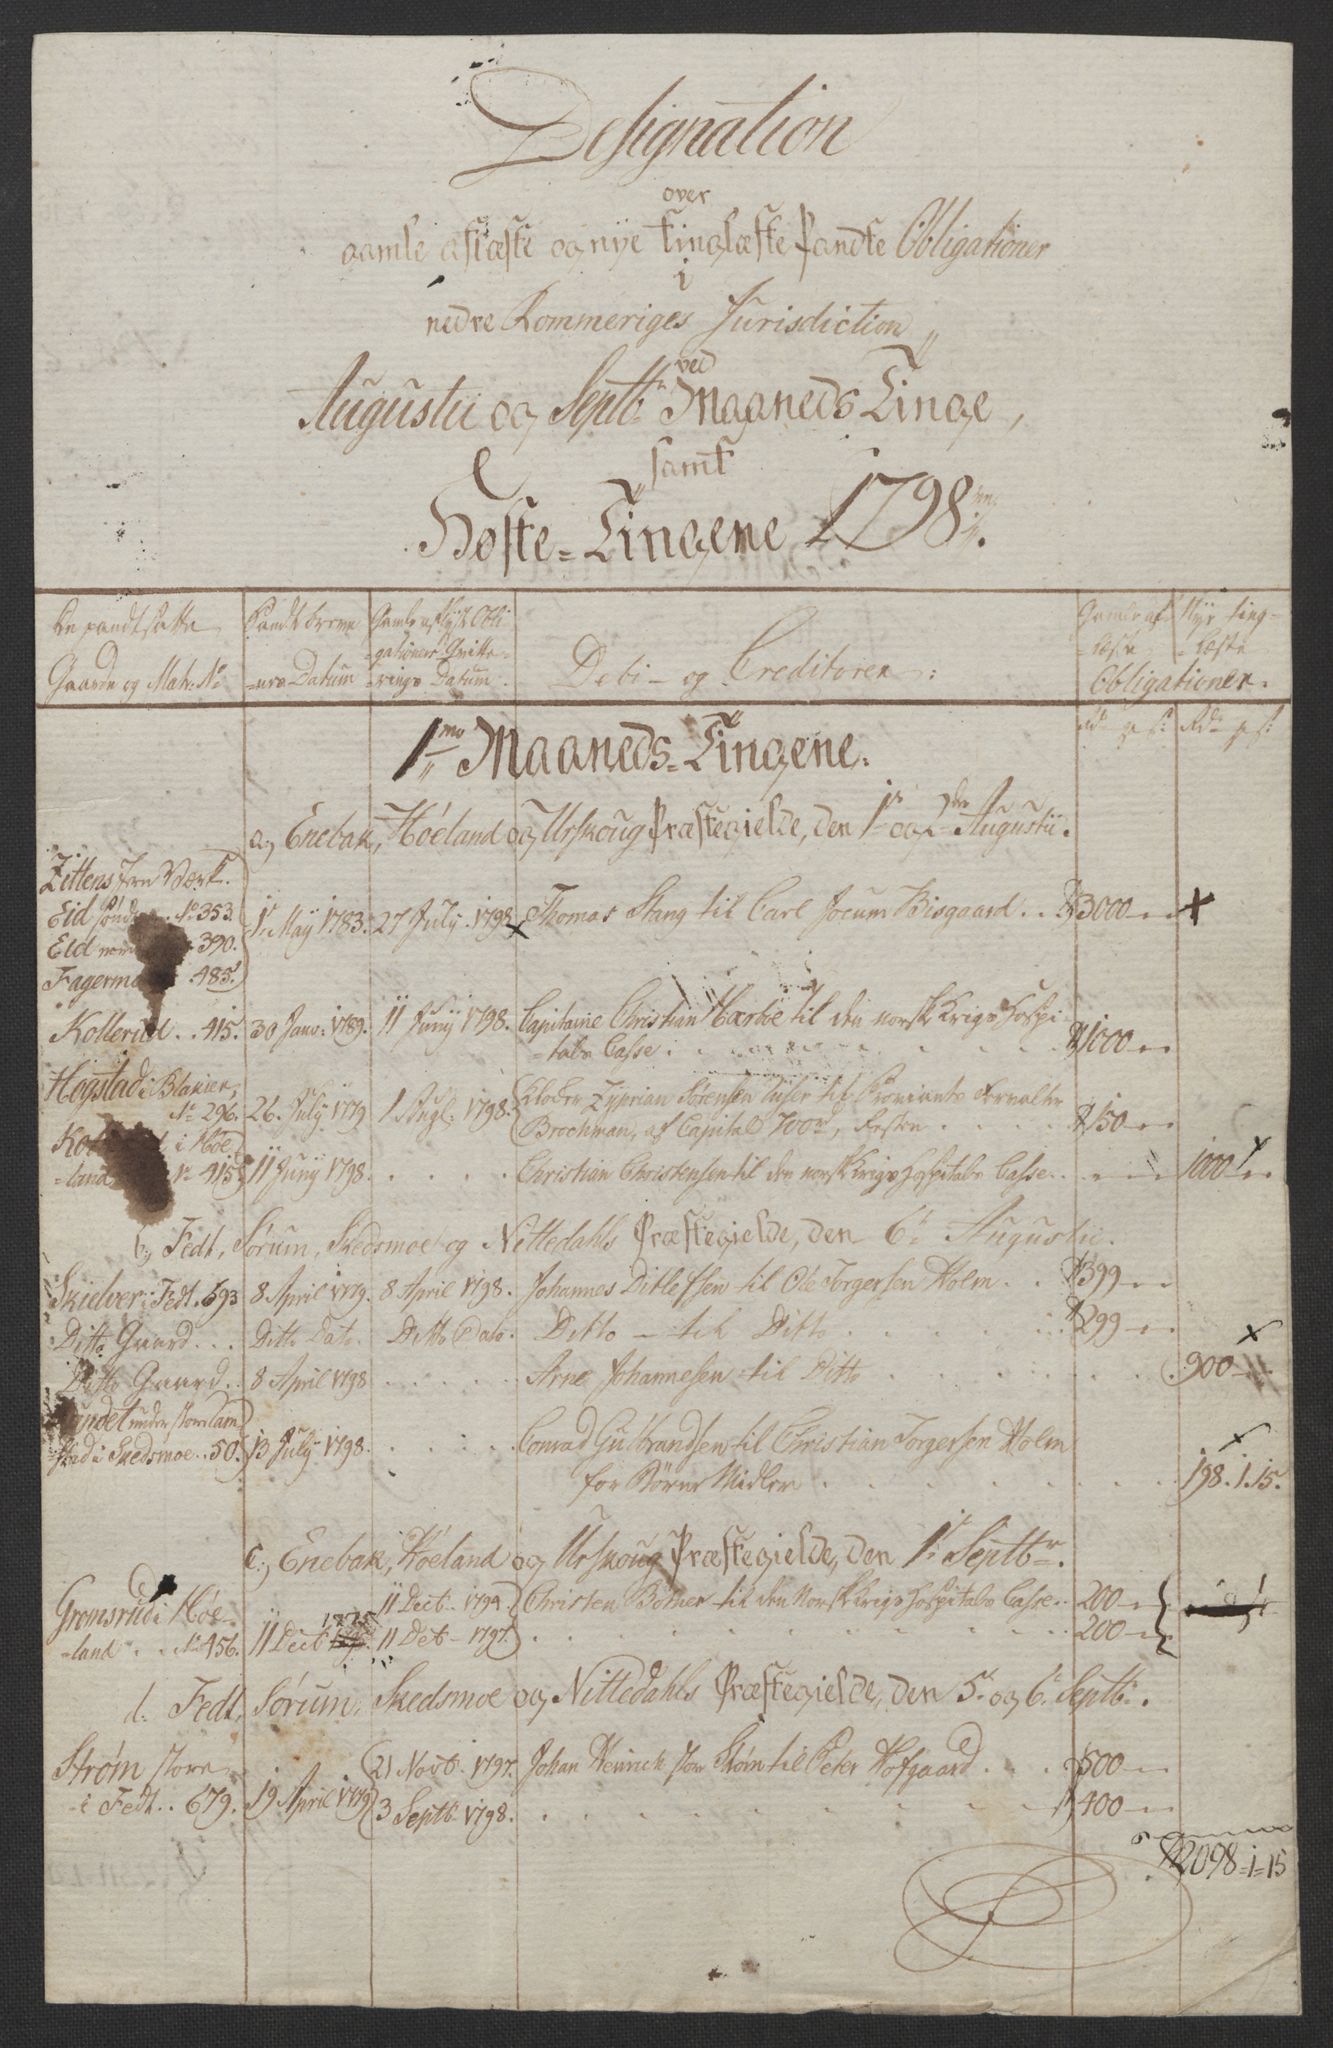 Designation
over
gamle aflæste og nye tinglæste Pandte Obligationer
i
nedre Rommeriges Jurisdiction
ved
Augustii og Septbr Maaneds Tinge,
samt
Høste-Tingene 1798.
De pandtsatte Gaarde og Matr: No
Pandtbreve- nes Datum
Gamle aflyste Obli- gationers Qvitte- rings Datum.
Debi- og Creditorer:
Gamle af- læste
Nye ting- læste
Obligationer.
Rdr ß: Rdr ß:
1mo Maaneds-Tingene.
a, Enebak, Høeland og Urskoug Præstegielde, den 1te og 2den Augustii.
Zittens Jern Værk.
Eid No 353.
Eid 390.
Fagerm 485.
1t Maij 1783. 27 July 1798. Thomas Stang til Carl Jocum Bisgaard . . 3000
Kollerud . . 415. 30 Janv. 1789. 11 Junij 1798. Capitaine Christian til den norske Krigs Hospi-
-tals Casse . . . 1000
Høgstad i Blakier,
No 296. 26 July 1779 1 Aug. 1798. Zyprian Sørensen til Proviants Forvalter
Brochman, af Capital 700rd, Resten . . . 150
i Høe-
-land No 415. 11 Junij 1798. . . . Christian Christensen til den norsk Krigs Hospitals Casse . . 1000
b, Fedt, Sørum, Skedsmoe og Nittedahls Præstegielde, den 6te Augustii.
Skielver i Fedt. 693 8 April 1779. 8 April 1798. Johannes Ditlefsen til Ole Torgersen Holm . . 399
Ditto Gaard . . . Ditto Dato. Ditto Dato. Ditto - til Ditto . . . 299
Ditto Gaard . . 8 April 1798 . . . Arne Johannesen til Ditto . . . 900
under store Lam
-stad i Skedsmoe . . 50. 13 July 1798. . . . Conrad Gulbrandsen til Christian Torgersen Holm
for Børne Midler . . . 198. 1. 15.
c, Enebak, Høeland og Urskoug Præstegielde, den 1te Septbr.
Gromsrud i Høe- 11 Decb 1794. Christen Børner til den Norsk Krigs Hospitals Casse . . 200
-land . . No 456. 11 Decb 1775 11 Decb 1797. . . . 200
d. Fedt, Sørum, Skedsmoe og Nittedahls Præstegielde, den 5te og 6te Septbr.
Strøm store 21 Novb. 1797. Johan Henrich store Strøm til Peter Hofgaard . . . 500
i Fedt . . 679. 19 April 1779 3 Septb. 1798. . . . 400
2098-1-15